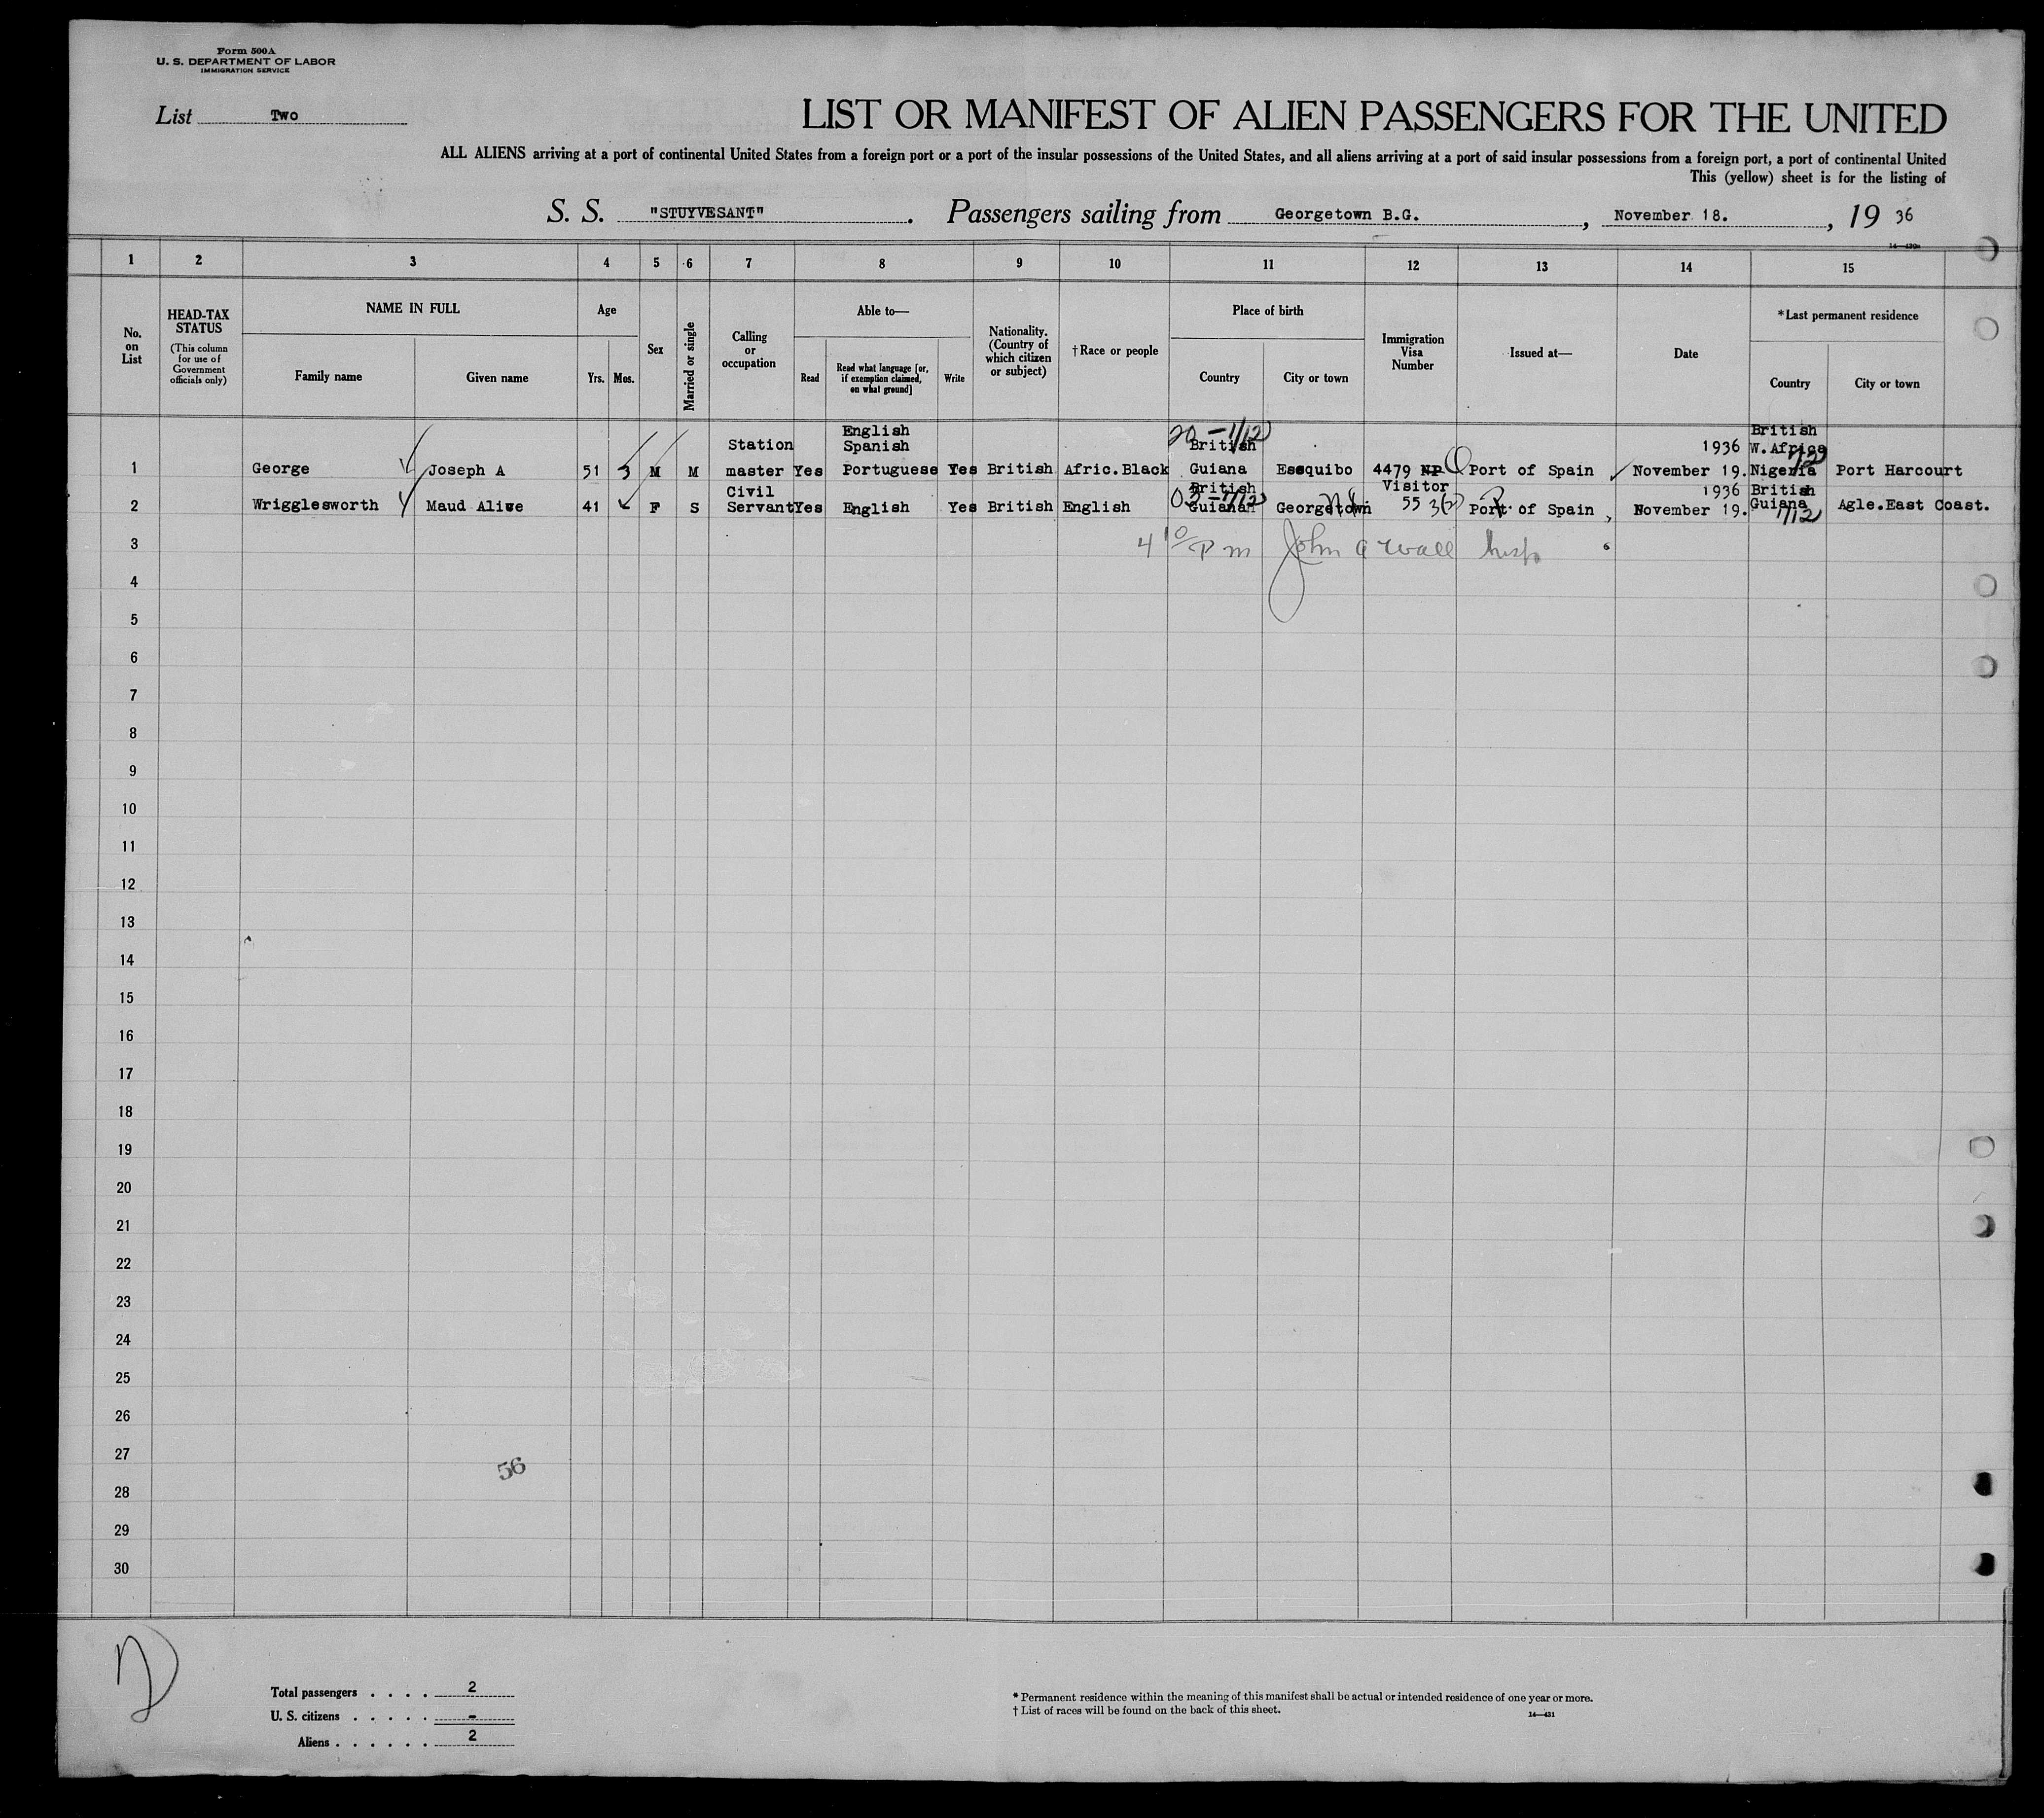 Form 500A
U. S. DEPARTMENT OF LABOR
IMMIGRATION SERVICE
List Two
LIST OR MANIFEST OF ALIEN PASSENGERS FOR THE UNITED
ALL ALIENS arriving at a port of continental United States from a foreign port or a port of the insular possessions of the United States, and all aliens arriving at a port of said insular possessions from a foreign port, a port of continental United
This (yellow) sheet is for the listing of
S. S. "STUYVESANT". Passengers sailing from Georgetown B.G., November 18., 19 36
1 2 3 4 5 6 7 8 9 10 11 12 13 14 15
No. on List
HEAD-TAX STATUS
(This column for use of Government officials only)
NAME IN FULL
Family name Given name
Age
Yrs. Mos.
Sex
Married or single
Calling or occupation
Able to—
Read
Read what language [or, if exemption claimed, on what ground]
Write
Nationality. (Country of which citizen or subject)
† Race or people
Place of birth
Country City or town
Immigration Visa Number
Issued at—
Date
* Last permanent residence
Country City or town
1 George Joseph A 51 M M Station master Yes English Spanish Portuguese Yes British Afric.Black British Guiana Essquibo 4479 NP Port of Spain 1936 November 19. British W.Africa Nigeria Port Harcourt
2 Wrigglesworth Maud Alice 41 F S Civil Servant Yes English Yes British English British Guiana Georgetown Visitor 55 3(2) Port of Spain 1936 November 19. British Guiana Agle.East Coast.
3 4 10 P m John A Wall Insp
4
5
6
7
8
9
10
11
12
13
14
15
16
17
18
19
20
21
22
23
24
25
26
27
56
28
29
30
Total passengers . . . . 2
U. S. citizens . . . . . -
Aliens . . . . . . 2
* Permanent residence within the meaning of this manifest shall be actual or intended residence of one year or more.
† List of races will be found on the back of this sheet.
14—431